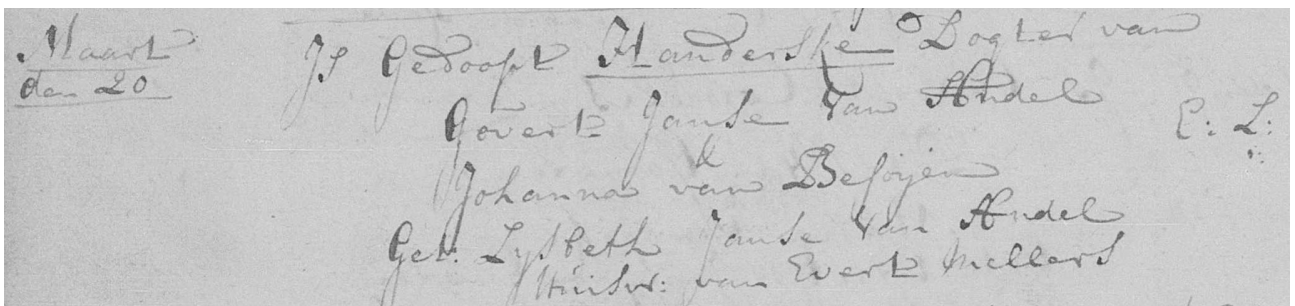 Maart
den 20
Is Gedoopt Handerske Dogter van
Govert Janse van Andel
&
Johanna van Besoijen
Get: Lysbeth Janse van Andel
Huisvr: van Evert Mellers
E: L: